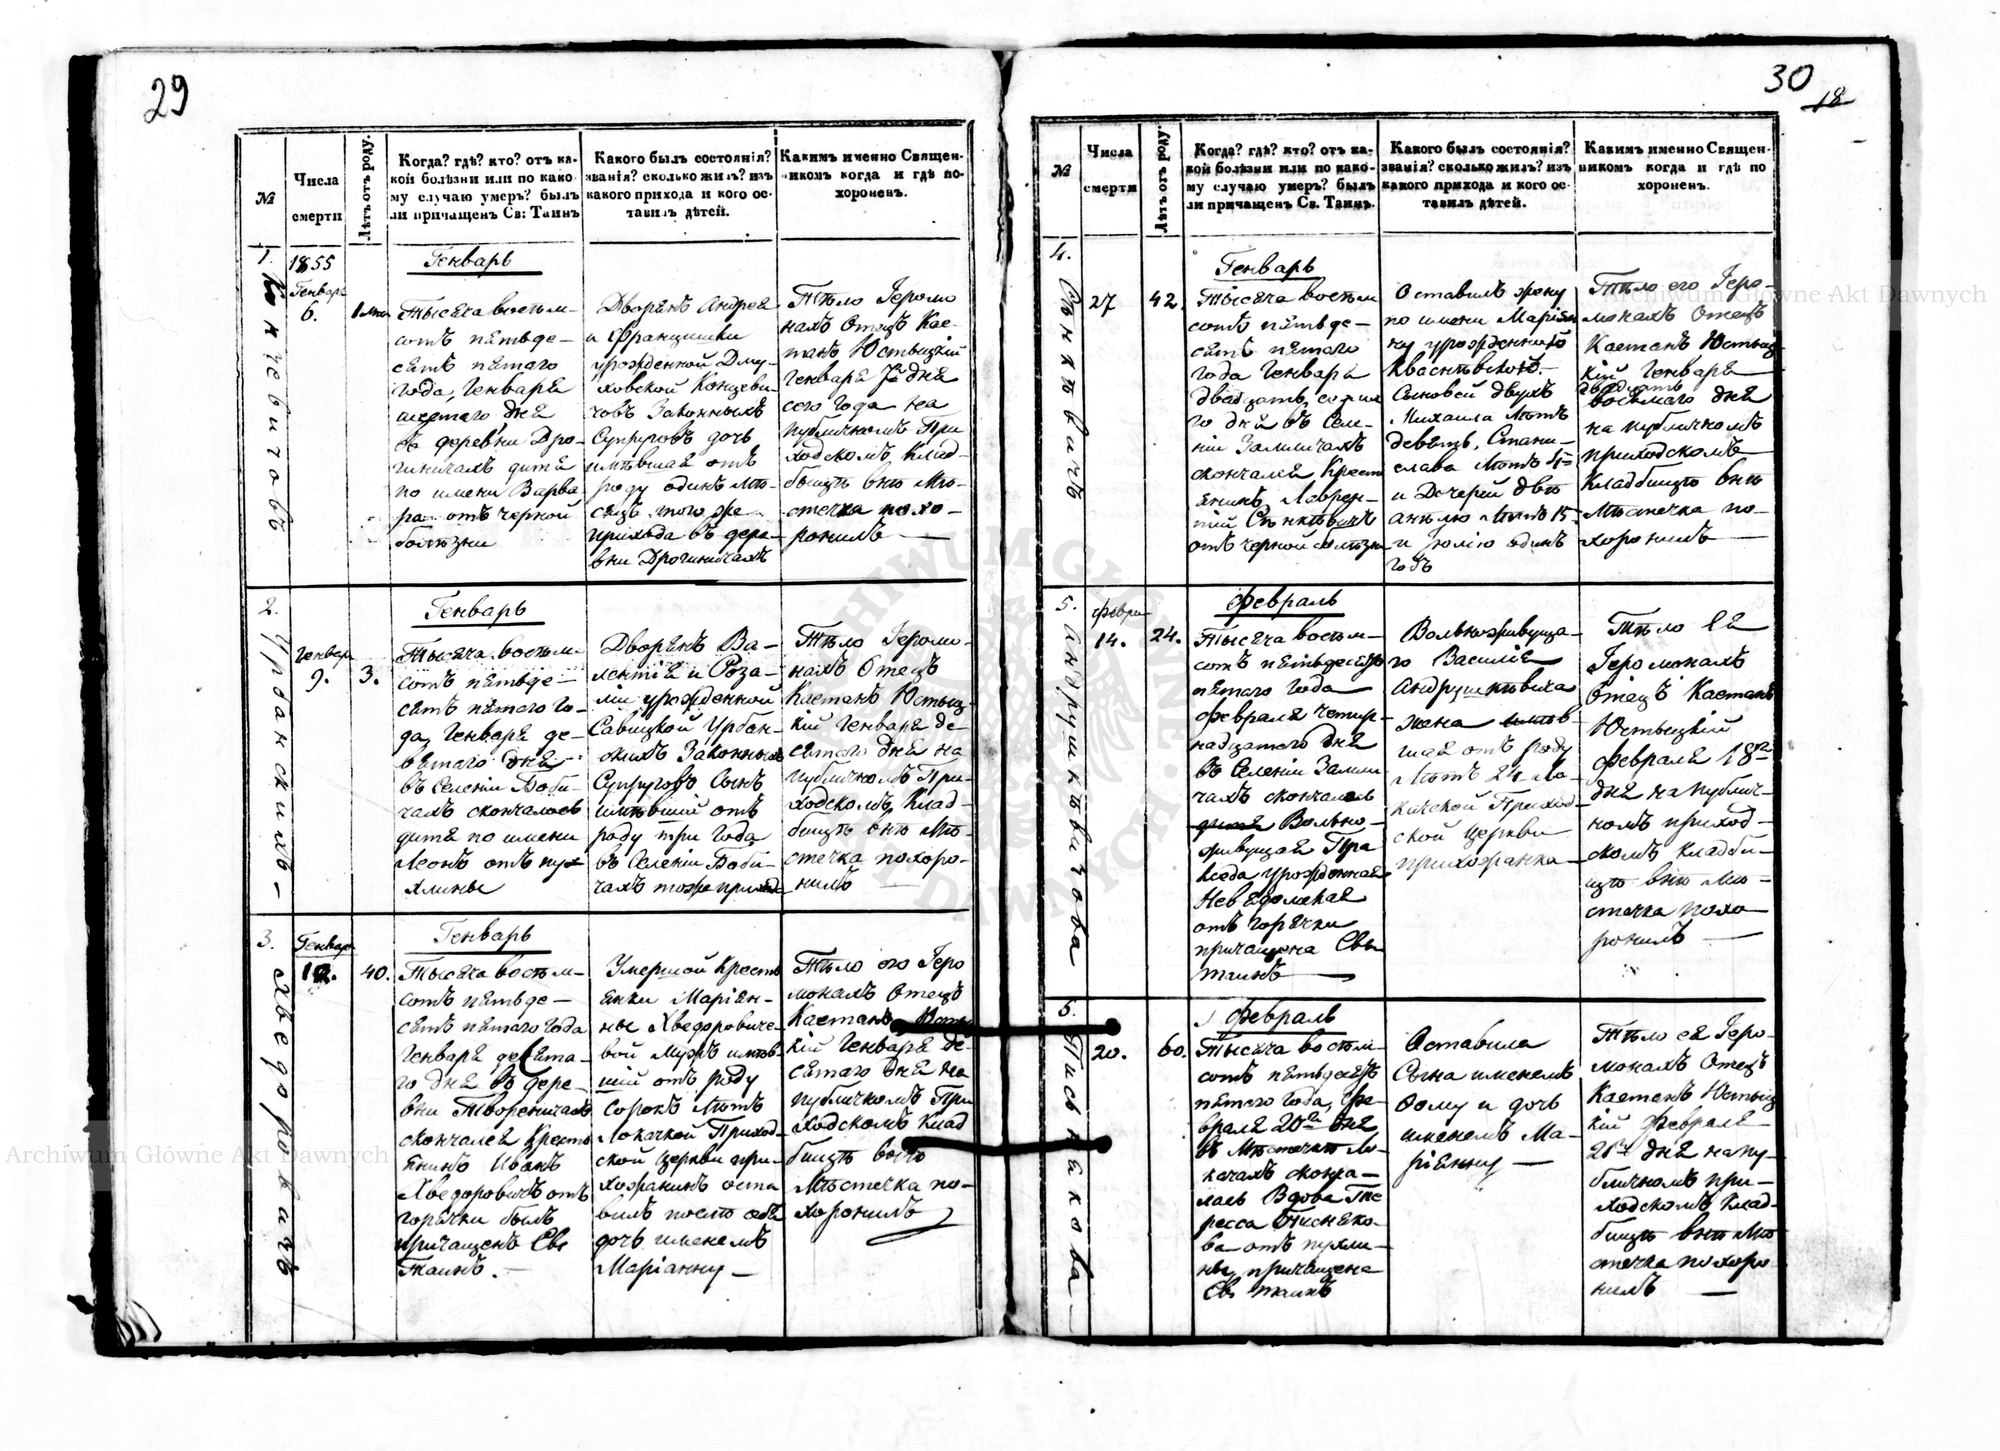 29
№
Числа
смерти
Лѣтъ отъ роду.
Когда? гдѣ? кто? отъ ка-
кой болѣзни или по како-
му случаю умеръ? былъ
ли причащенъ Св: Таинъ
Какого былъ состоянія?
званія? сколько жилъ? изъ
какого прихода и кого ос-
тавилъ дѣтей.
Какимъ именно Священ-
никомъ когда и гдѣ по-
хороненъ.
1.
Концевичовъ
1855
Генваря
6.
1 мѣс
Генварь
Тысяча восьм-
сотъ пятьде-
сятъ пятаго
года, Генваря
шестаго дня
въ деревни Дро-
гиничахъ дитя
по имени Варва
ра отъ черной
болѣзни
Дворянъ Андрея
и Францишки
урожденной Дму-
ховской Концеви-
човъ Законныхъ
Супруговъ дочь
имѣвшая отъ
роду одинъ мѣ-
сяцъ того же
прихода въ дере-
вни Дрогиничахъ
Тѣло Іеромо
нахъ Отецъ Кае-
танъ Юстыцкій
Генваря 7го дня
сего года на
публичномъ При
ходскомъ Клад-
бищѣ внѣ Мѣ-
стечка похо-
ронилъ —
2.
Урбанскихъ -
Генваря
9.
3.
Генварь
Тысяча восьм-
сотъ пятьде-
сятъ пятаго го-
да, Генваря де-
вятаго дня
въ селеніи Боби-
чахъ скончалось
дитя по имени
Леонъ отъ пух
хлины
Дворянъ Ва-
лентія и Роза-
ліи урожденной
Савицкой Урбан-
скихъ Законныхъ
Супруговъ Сынъ
имѣвшій отъ
роду три года
въ Селеніи Боби-
чахъ тогоже прихода
Тѣло Іеромо-
нахъ Отецъ
Каетанъ Юстыц-
кій Генваря де-
сятаго дня на
публичномъ При-
ходскомъ Клад-
бищѣ внѣ Мѣ-
стечка похоро-
нилъ —
3.
Хведоровичъ
Генваря
12.
40.
Генварь
Тысяча восьм-
сотъ пятьде-
сятъ пятаго года
Генваря десята-
го дня въ дере-
вни Твореничахъ
скончался Кресть
янинъ Иванъ
Хведоровичъ отъ
горячки былъ
причащенъ Свы
Таинъ. —
Умершой Кресть
янки Маріян-
ны Хведоровиче-
вой Мужъ имѣв-
шій отъ роду
сорокъ Лѣтъ
Локачкой Приход-
ской церкви при-
хожанинъ оста
вилъ послѣ себя
дочь именемъ
Маріанну —
Тѣло его Іеро
монахъ Отецъ
Каетанъ Юстыц
кій Генваря де-
сятаго дня на
публичномъ При
ходскомъ Клад
бищѣ внѣ
Мѣстечка по-
хоронилъ
30
18
№
Числа
смерти
Лѣтъ отъ роду.
Когда? гдѣ? кто? отъ ка-
кой болѣзни или по како-
му случаю умеръ? былъ
ли причащенъ Св. Таинъ.
Какого былъ состоянія?
званія? сколько жилъ? изъ
какого прихода и кого ос-
тавилъ дѣтей.
Какимъ именно Священ-
никомъ когда и гдѣ по
хороненъ.
4.
Сѣнкѣвичъ
27
42.
Генварь
Тысяча восьм
сотъ пятьде-
сятъ пятаго
года Генваря
двадцать седьма
го дня въ Селе-
ніи Залиичахъ
скончался Крест
янинъ Лаврен-
тій Сѣнкѣвичъ
отъ черной болѣзни
Оставилъ жену
по имени Маріян
ну урожденную
Кваснѣвскою. —
Сыновей двухъ
Михаила Лѣтъ
девять, Стани-
слава Лѣтъ 4-
и Дочерей двѣ
анѣлю Лѣтъ 15
и Юлію одинъ
годъ
Тѣло его Іеро-
монахъ Отецъ
Каетанъ Юстыц
кій Генваря
двадцать
восьмаго дня
на публичномъ
приходскомъ
Кладбищѣ внѣ
Мѣстечка по-
хоронилъ —
5.
Андрушкѣвичова
Февраля
14.
24.
Февраль
Тысяча восьм-
сотъ пятьдесятъ
пятаго года
Февраля четыр-
надцатого дня
въ Селеніи Залии
чахъ скончалась
дитя Вольно-
живущая Пра
кседа урожденная
Невядомская
отъ горячки
причащена Свы
таинъ —
Вольноживуща-
го Василія
Андрушкѣвича
жена имѣв-
шая отъ роду
Лѣтъ 24 Ло-
качской Приход-
ской церкви
прихожанка —
Тѣло Ея
Іеромонахъ
Отецъ Каетанъ
Юстыцкій
Февраля 18го
дня на публич-
номъ приход-
скомъ кладби-
щѣ внѣ Мѣ-
стечка похо-
ронилъ —
6.
Писнякова —
20.
60.
Февраль
Тысяча восьм-
сотъ пятьдесятъ
пятаго года, Фе-
враля 20го дня
въ Мѣстечкѣ Ло-
качахъ сконча-
лась Вдова Те
ресса Писняко-
ва отъ пухли-
ны, причащена
Св. таинъ
Оставила
Сына именемъ
Фому и дочь
именемъ Ма-
ріянну —
Тѣло ея Іеро-
монахъ Отецъ
Каетанъ Юстыц
кій Февраля
21го дня на пу-
бличномъ при-
ходскомъ Клад-
бищѣ внѣ Мѣ
стечка похоро-
нилъ —
Archiwum Główne Akt Dawnych
Archiwum Główne Akt Dawnych
ARCHIWUM GŁÓWNE AKT DAWNYCH